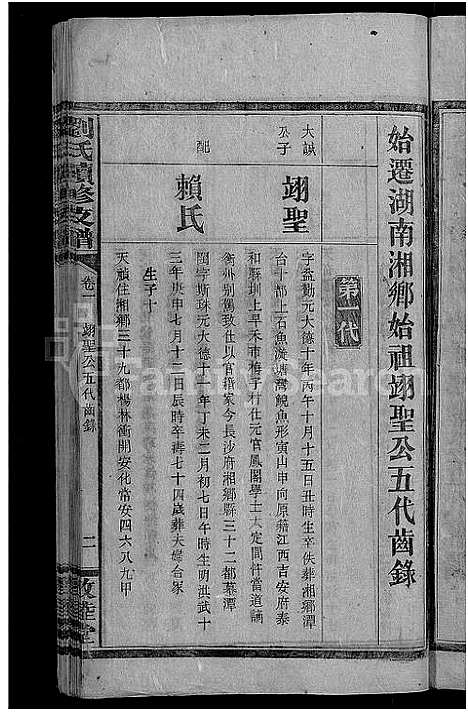 始遷湖南湘鄉始祖翊聖公五代齒錄
第一代
大誠公子 翊聖
字益勸元大德十年丙午十月十五日丑時生卒佚葬湘鄉潭
台十都上石魚漩塘灣鯢魚形寅山申向原藉江西吉安府泰
和縣圳上早禾市梅子村仕元官鳳閣學士大定間忤當道謫
衡州別駕致仕以官籍家今長沙府湘鄉縣三十二都墓潭
配 賴氏
閨字斯珠元大德十一年丁未二月初七日午時生明洪武十
三年庚申七月十二日辰時辛壽七十四歲葬夫塋合冢
生子十
天禎住湘鄉三十九都楊林衝開安化常安四六八九甲
劉氏續修支譜
卷一
翊聖公五代齒錄
二
敦睦堂
FamilySearch